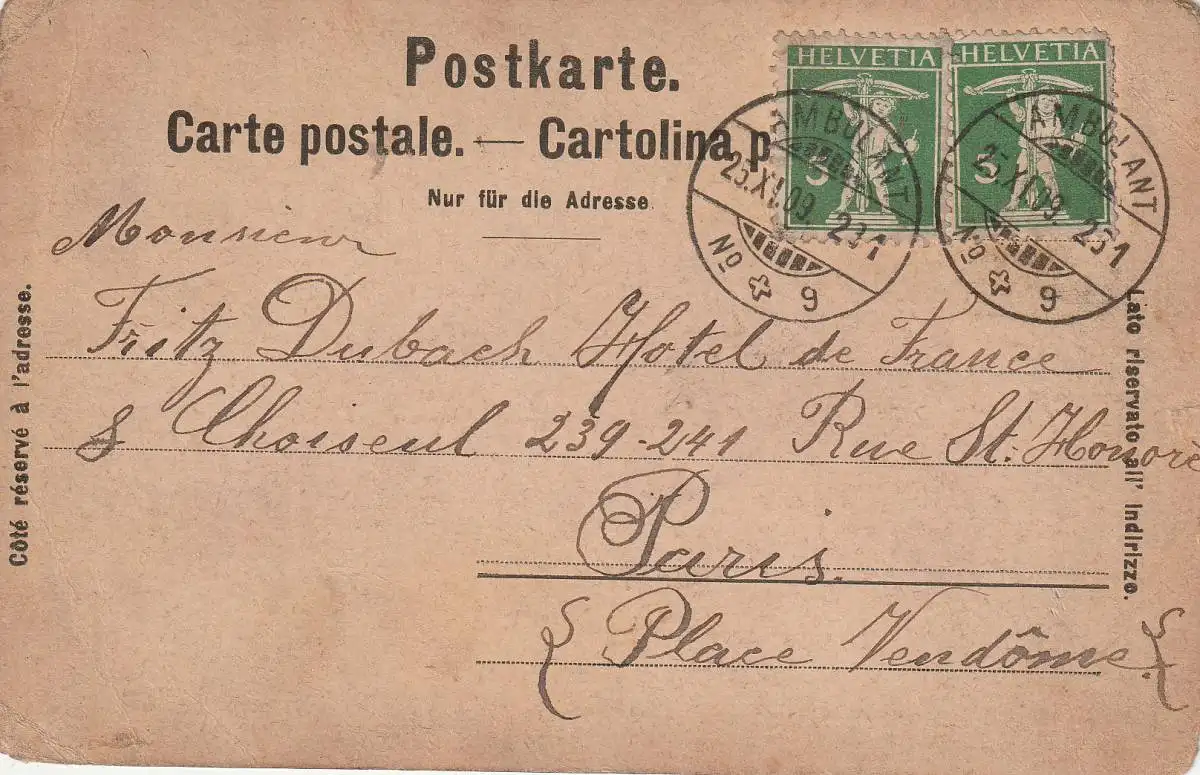 Postkarte.
Carte postale. — Cartolina p
Nur für die Adresse
HELVETIA
5
HELVETIA
5
AMBULANT
25.XI.09. 231
No 9
AMBULANT
25.XI.09. 231
No 9
Côté réservé à l'adresse.
Lato riservato all' indirizzo.
Monsieur
Fritz Dubach Hotel de France
& Choiseul 239-241 Rue St. Honoré
Paris.
{ Place Vendôme. }